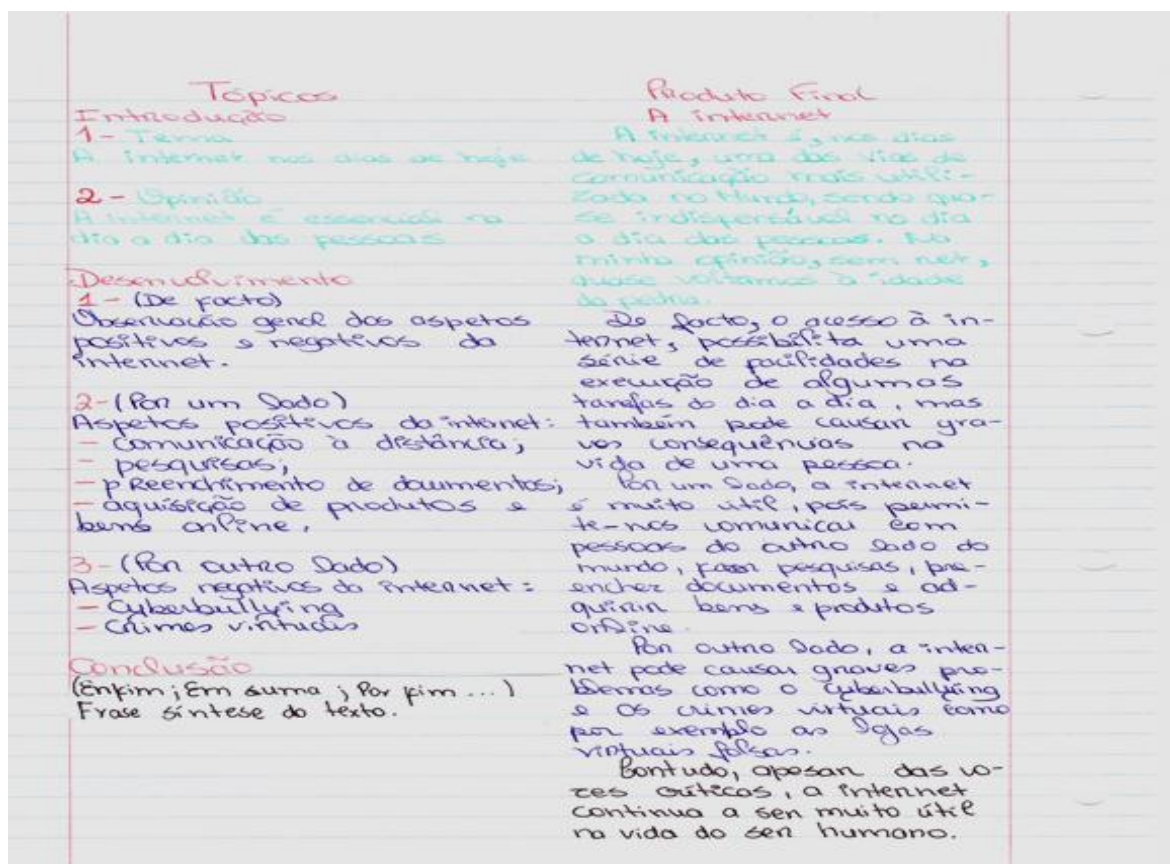 Tópicos
Introdução
1 - Tema
A internet nos dias de hoje
2 - Opinião
A internet é essencial no
dia a dia das pessoas
Desenvolvimento
1 - (De facto)
Observação geral dos aspetos
positivos e negativos da
internet.
2 - (Por um lado)
Aspetos positivos da internet:
- comunicação à distância;
- pesquisas;
- preenchimento de documentos;
- aquisição de produtos e
bens online.
3 - (Por outro lado)
Aspetos negativos da internet:
- Cyberbullying
- Crimes virtuais
Conclusão
(Enfim; Em suma; Por fim...)
Frase síntese do texto.
Produto Final
A internet
A internet é, nos dias
de hoje, uma das vias de
comunicação mais utili-
zada no Mundo, sendo qua-
se indispensável no dia
a dia das pessoas. Na
minha opinião, sem net,
quase voltamos à idade
da pedra.
De facto, o acesso à in-
ternet, possibilita uma
série de facilidades na
execução de algumas
tarefas do dia a dia, mas
também pode causar gra-
ves consequências na
vida de uma pessoa.
Por um lado, a internet
é muito útil, pois permi-
te-nos comunicar com
pessoas do outro lado do
mundo, fazer pesquisas, pre-
encher documentos e ad-
quirir bens e produtos
online.
Por outro lado, a inter-
net pode causar graves pro-
blemas como o cyberbullying
e os crimes virtuais como
por exemplo as lojas
virtuais falsas.
Contudo, apesar das vo-
zes críticas, a internet
continua a ser muito útil
na vida do ser humano.